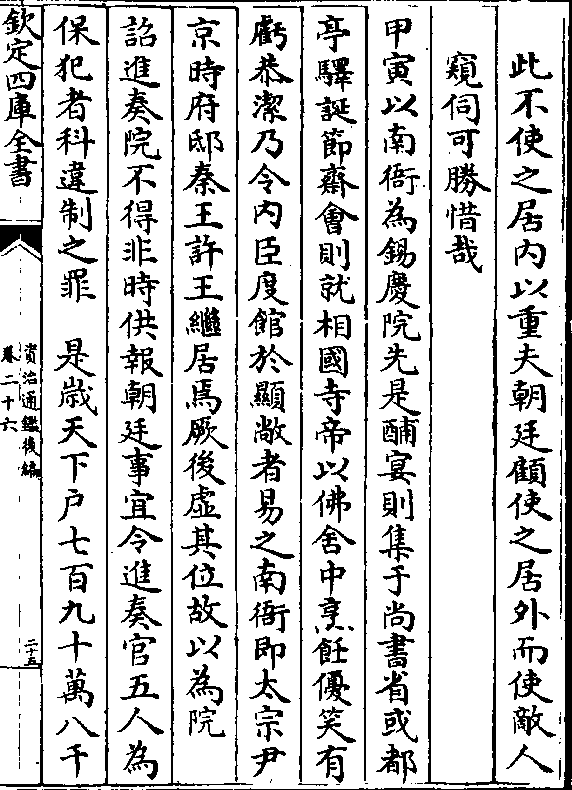 此不使之居内以重夫朝廷顧使之居外而使敵人
窺伺可勝惜哉
甲寅以南衙為錫慶院先是酺宴則集于尚書省或都
亭驛誕節齋會則就相國寺帝以佛舍中烹飪優笑有
虧恭潔乃令内臣度館於顯敞者易之南衙即太宗尹
京時府邸秦王許王繼居焉厥後虛其位故以為院
詔進奏院不得非時供報朝廷事宜令進奏官五人為
保犯者科違制之罪　是歲天下户七百九十萬八千
欽定四庫全書
資治通鑑後編
卷二十六
二十五